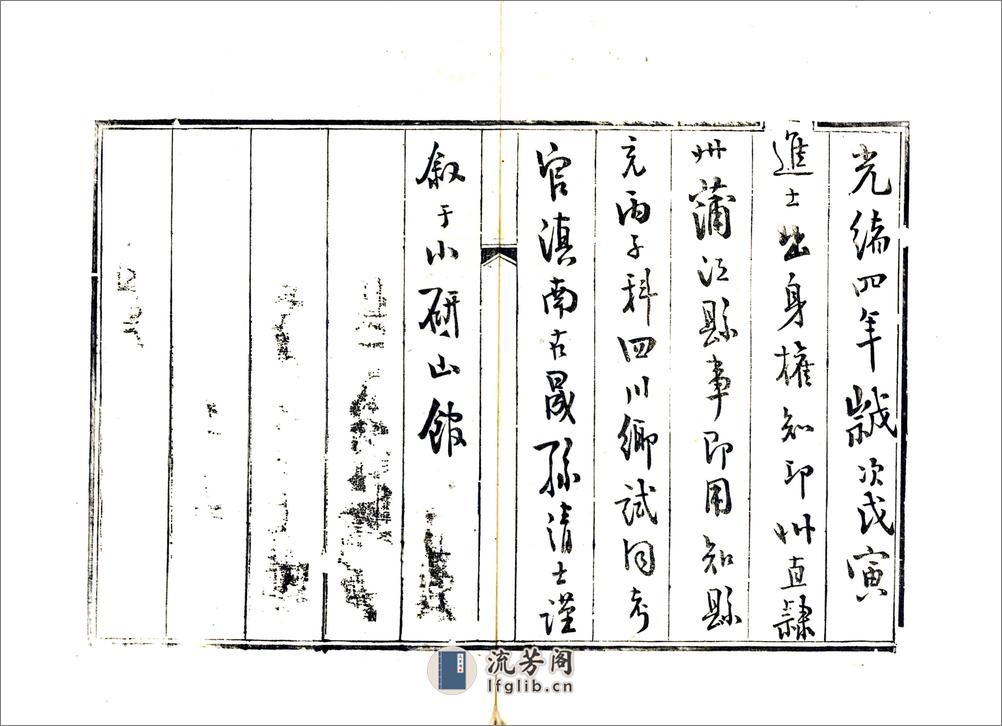 光緒四年歲次戊寅
進士出身權知邛州直隸
州蒲江縣事即用知縣
充丙子科四川鄉試同考
官滇南古晟孫清士謹
叙于小研山館
流芳阁
lfglib.cn